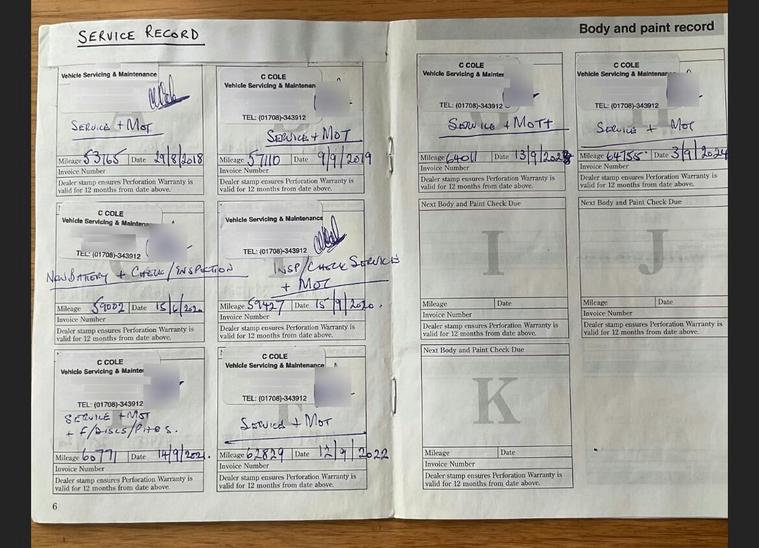 SERVICE RECORD
Vehicle Servicing & Maintenance
SERVICE + MOT
Mileage 53765 Date 29/8/2018
Invoice Number
Dealer stamp ensures Perforation Warranty is
valid for 12 months from date above.
C COLE
Vehicle Servicing & Maintenan
TEL: (01708)-343912
SERVICE + MOT
Mileage 57110 Date 9/9/2019
Invoice Number
Dealer stamp ensures Perforation Warranty is
valid for 12 months from date above.
C COLE
Vehicle Servicing & Maintenan
TEL: (01708)-343912
NEW BATTERY + CHECK/INSPECTION
Mileage 59002 Date 15/6/2020
Invoice Number
Dealer stamp ensures Perforation Warranty is
valid for 12 months from date above.
Vehicle Servicing & Maintenance
TEL: (01708)-343912
INSP/CHECK SERVICE
+ MOT
Mileage 59427 Date 15/9/2020.
Invoice Number
Dealer stamp ensures Perforation Warranty is
valid for 12 months from date above.
C COLE
Vehicle Servicing & Mainten
TEL: (01708)-343912
SERVICE + MOT
+ F/DISCS/PADS.
Mileage 60771 Date 14/9/2021.
Invoice Number
Dealer stamp ensures Perforation Warranty is
valid for 12 months from date above.
C COLE
Vehicle Servicing & Maintenance
TEL: (01708)-343912
SERVICE + MOT
Mileage 62829 Date 12/9/2022
Invoice Number
Dealer stamp ensures Perforation Warranty is
valid for 12 months from date above.
6
Body and paint record
C COLE
Vehicle Servicing & Mainten
TEL: (01708)-343912
SERVICE + MOT
Mileage 64011 Date 13/9/2023
Invoice Number
Dealer stamp ensures Perforation Warranty is
valid for 12 months from date above.
C COLE
Vehicle Servicing & Maintenan
TEL: (01708)-343912
SERVICE + MOT
Mileage 64755 Date 3/9/2024
Invoice Number
Dealer stamp ensures Perforation Warranty is
valid for 12 months from date above.
Next Body and Paint Check Due
I
Mileage Date
Invoice Number
Dealer stamp ensures Perforation Warranty is
valid for 12 months from date above.
Next Body and Paint Check Due
J
Mileage Date
Invoice Number
Dealer stamp ensures Perforation Warranty is
valid for 12 months from date above.
Next Body and Paint Check Due
K
Mileage Date
Invoice Number
Dealer stamp ensures Perforation Warranty is
valid for 12 months from date above.